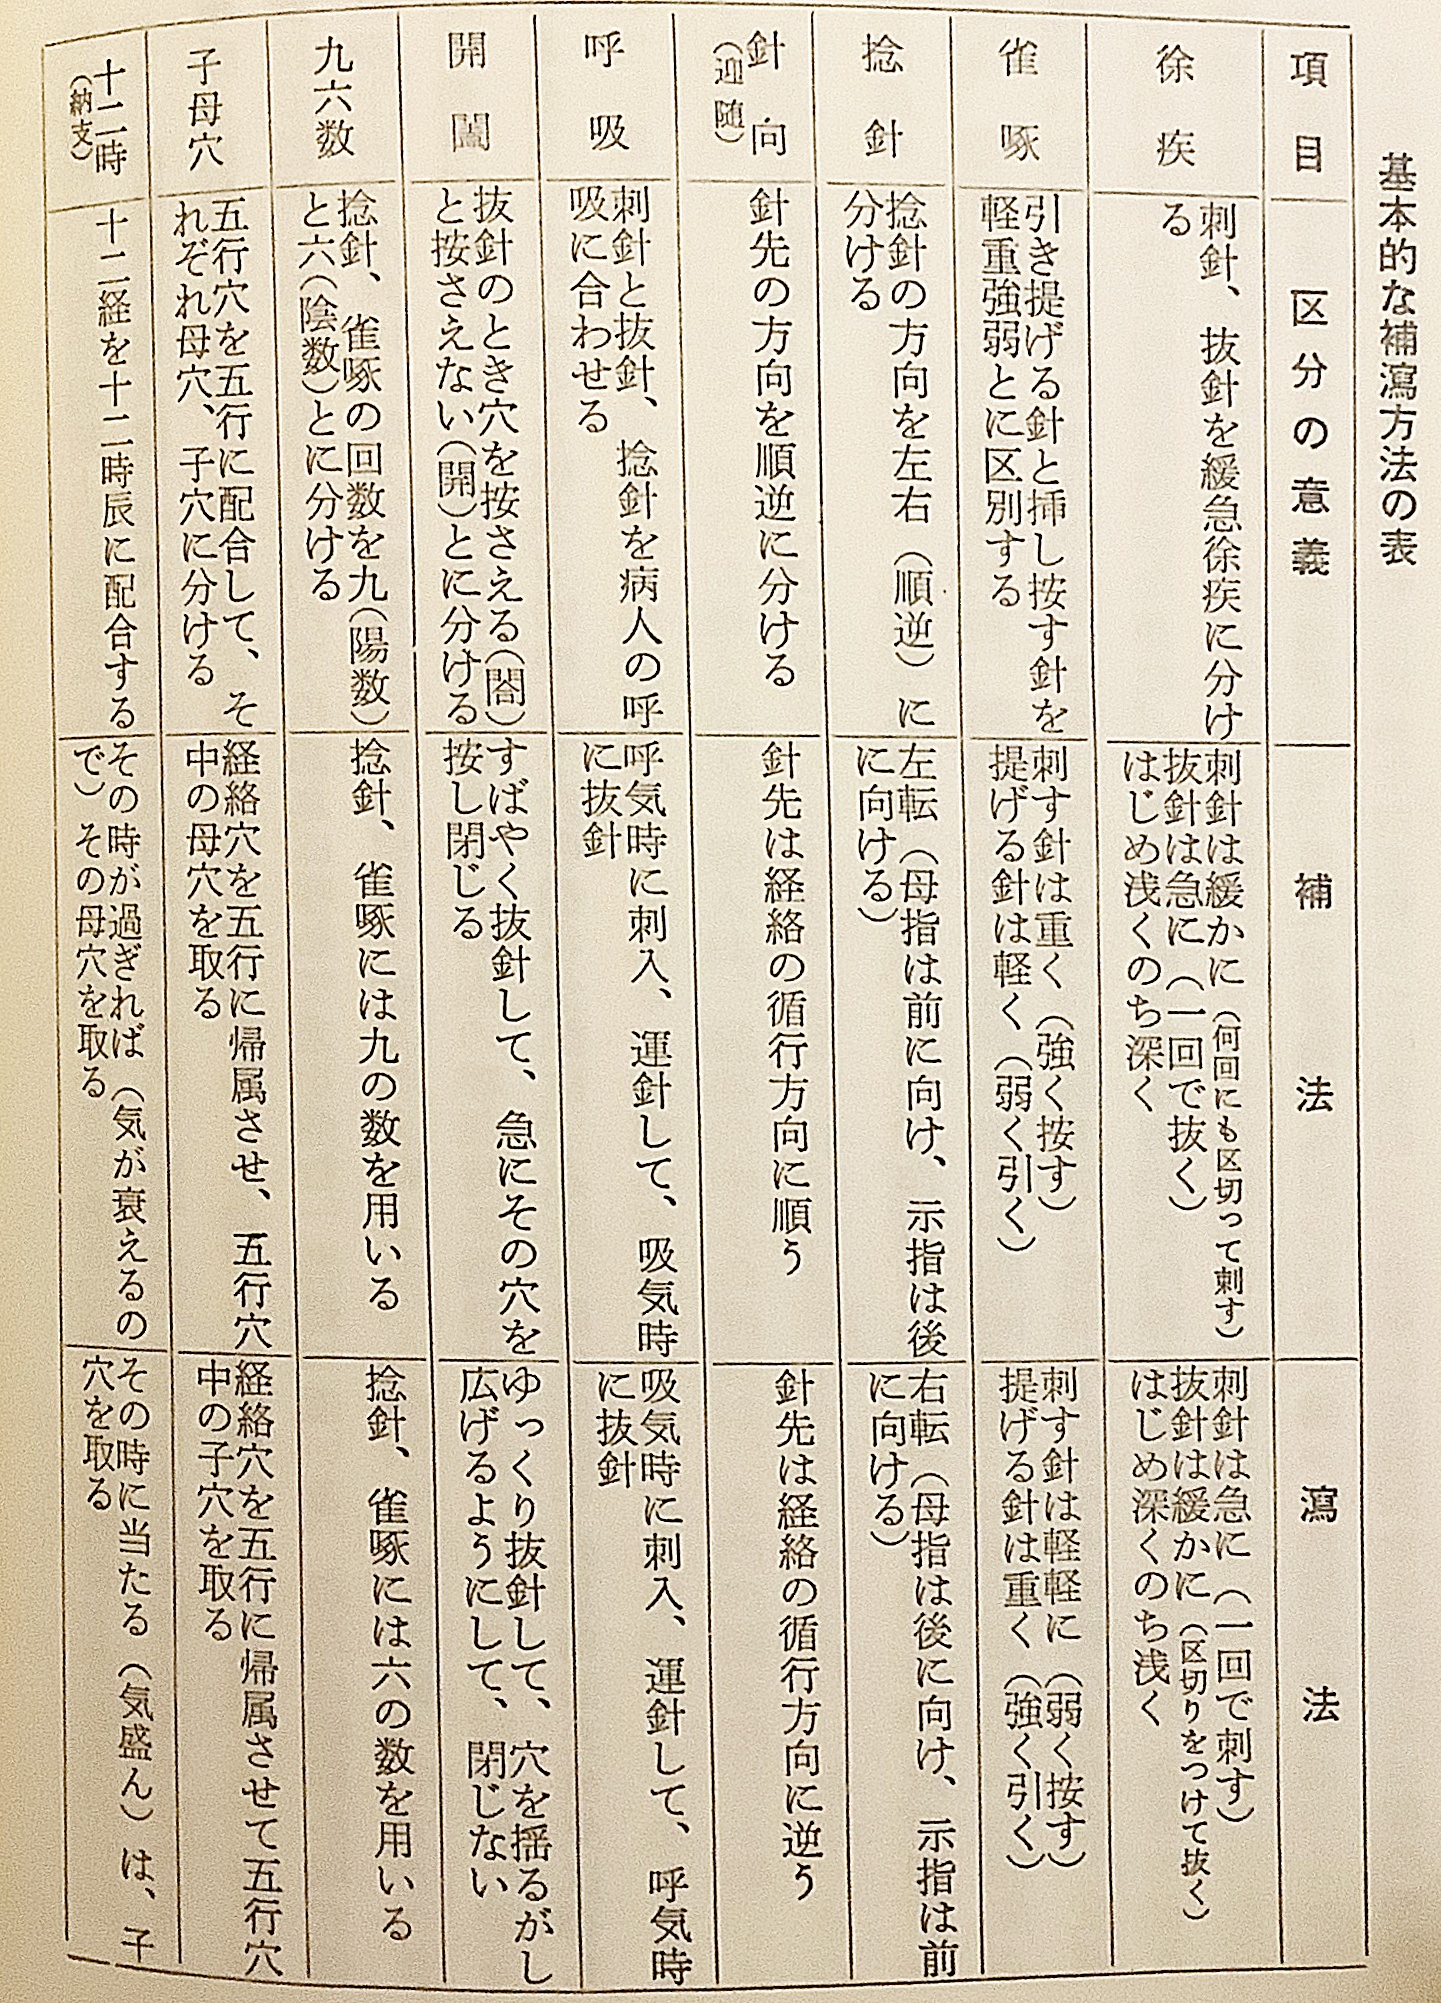 基本的な補瀉方法の表
項目
区分の意義
補法
瀉法
徐疾
刺針、抜針を緩急徐疾に分け
る
刺針は緩かに（何回にも区切って刺す）
抜針は急に（一回で抜く）
はじめ浅くのち深く
刺針は急に（一回で刺す）
抜針は緩かに（区切りをつけて抜く）
はじめ深くのち浅く
雀啄
引き提げる針と挿し按す針を
軽重強弱とに区別する
刺す針は重く（強く按す）
提げる針は軽く（弱く引く）
刺す針は軽軽に（弱く按す）
提げる針は重く（強く引く）
捻針
捻針の方向を左右（順逆）に
分ける
左転（母指は前に向け、示指は後
に向ける）
右転（母指は後に向け、示指は前
に向ける）
針向
（迎随）
針先の方向を順逆に分ける
針先は経絡の循行方向に順う
針先は経絡の循行方向に逆う
呼吸
刺針と抜針、捻針を病人の呼
吸に合わせる
呼気時に刺入、運針して、吸気時
に抜針
吸気時に刺入、運針して、呼気時
に抜針
開闔
抜針のとき穴を按さえる（闔）
と按さえない（開）とに分ける
すばやく抜針して、急にその穴を
按し閉じる
ゆっくり抜針して、穴を揺るがし
広げるようにして、閉じない
九六数
捻針、雀啄の回数を九（陽数）
と六（陰数）とに分ける
捻針、雀啄には九の数を用いる
捻針、雀啄には六の数を用いる
子母穴
五行穴を五行に配合して、そ
れぞれ母穴、子穴に分ける
経絡穴を五行に帰属させ、五行穴
中の母穴を取る
経絡穴を五行に帰属させて五行穴
中の子穴を取る
十二時
（納支）
十二経を十二時辰に配合する
その時が過ぎれば（気が衰えるの
で）その母穴を取る
その時に当たる（気盛ん）は、子
穴を取る